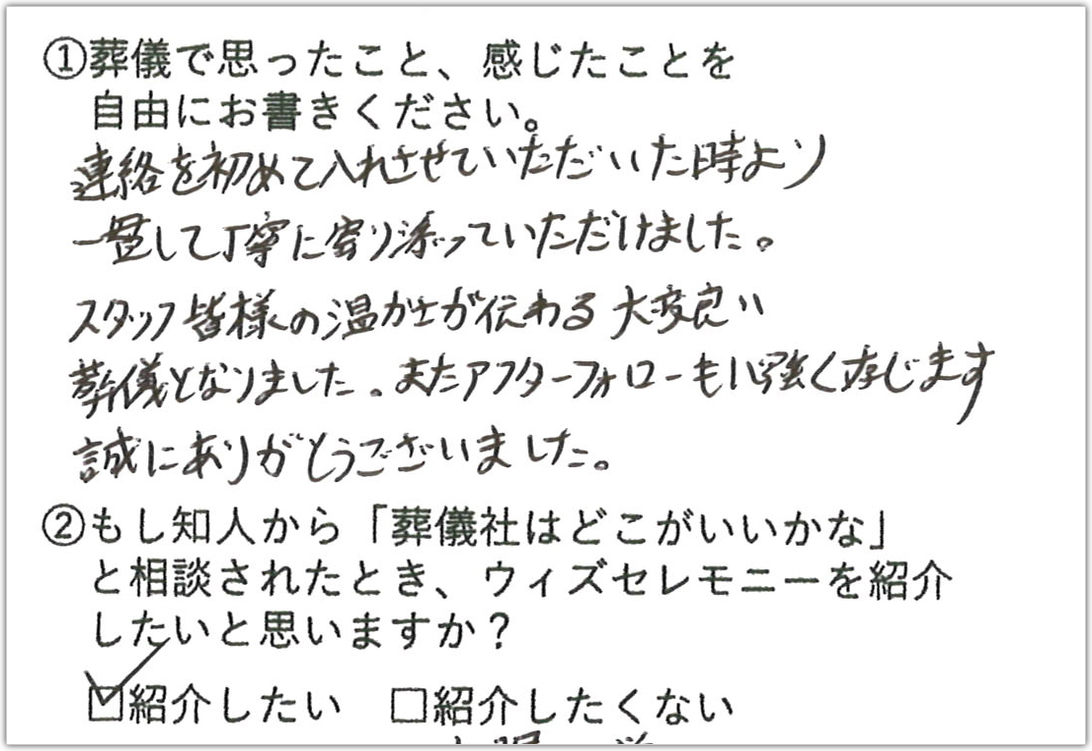 ①葬儀で思ったこと、感じたことを
自由にお書きください。
連絡を初めて入れさせていただいた時より
一貫して丁寧に寄り添っていただけました。
スタッフ皆様の温かさが伝わる大変良い
葬儀となりました。またアフターフォローも心強く存じます
誠にありがとうございました。
②もし知人から「葬儀社はどこがいいかな」
と相談されたとき、ウィズセレモニーを紹介
したいと思いますか？
☑紹介したい □紹介したくない